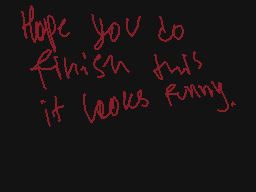 Hope you do
finish this
it looks funny.